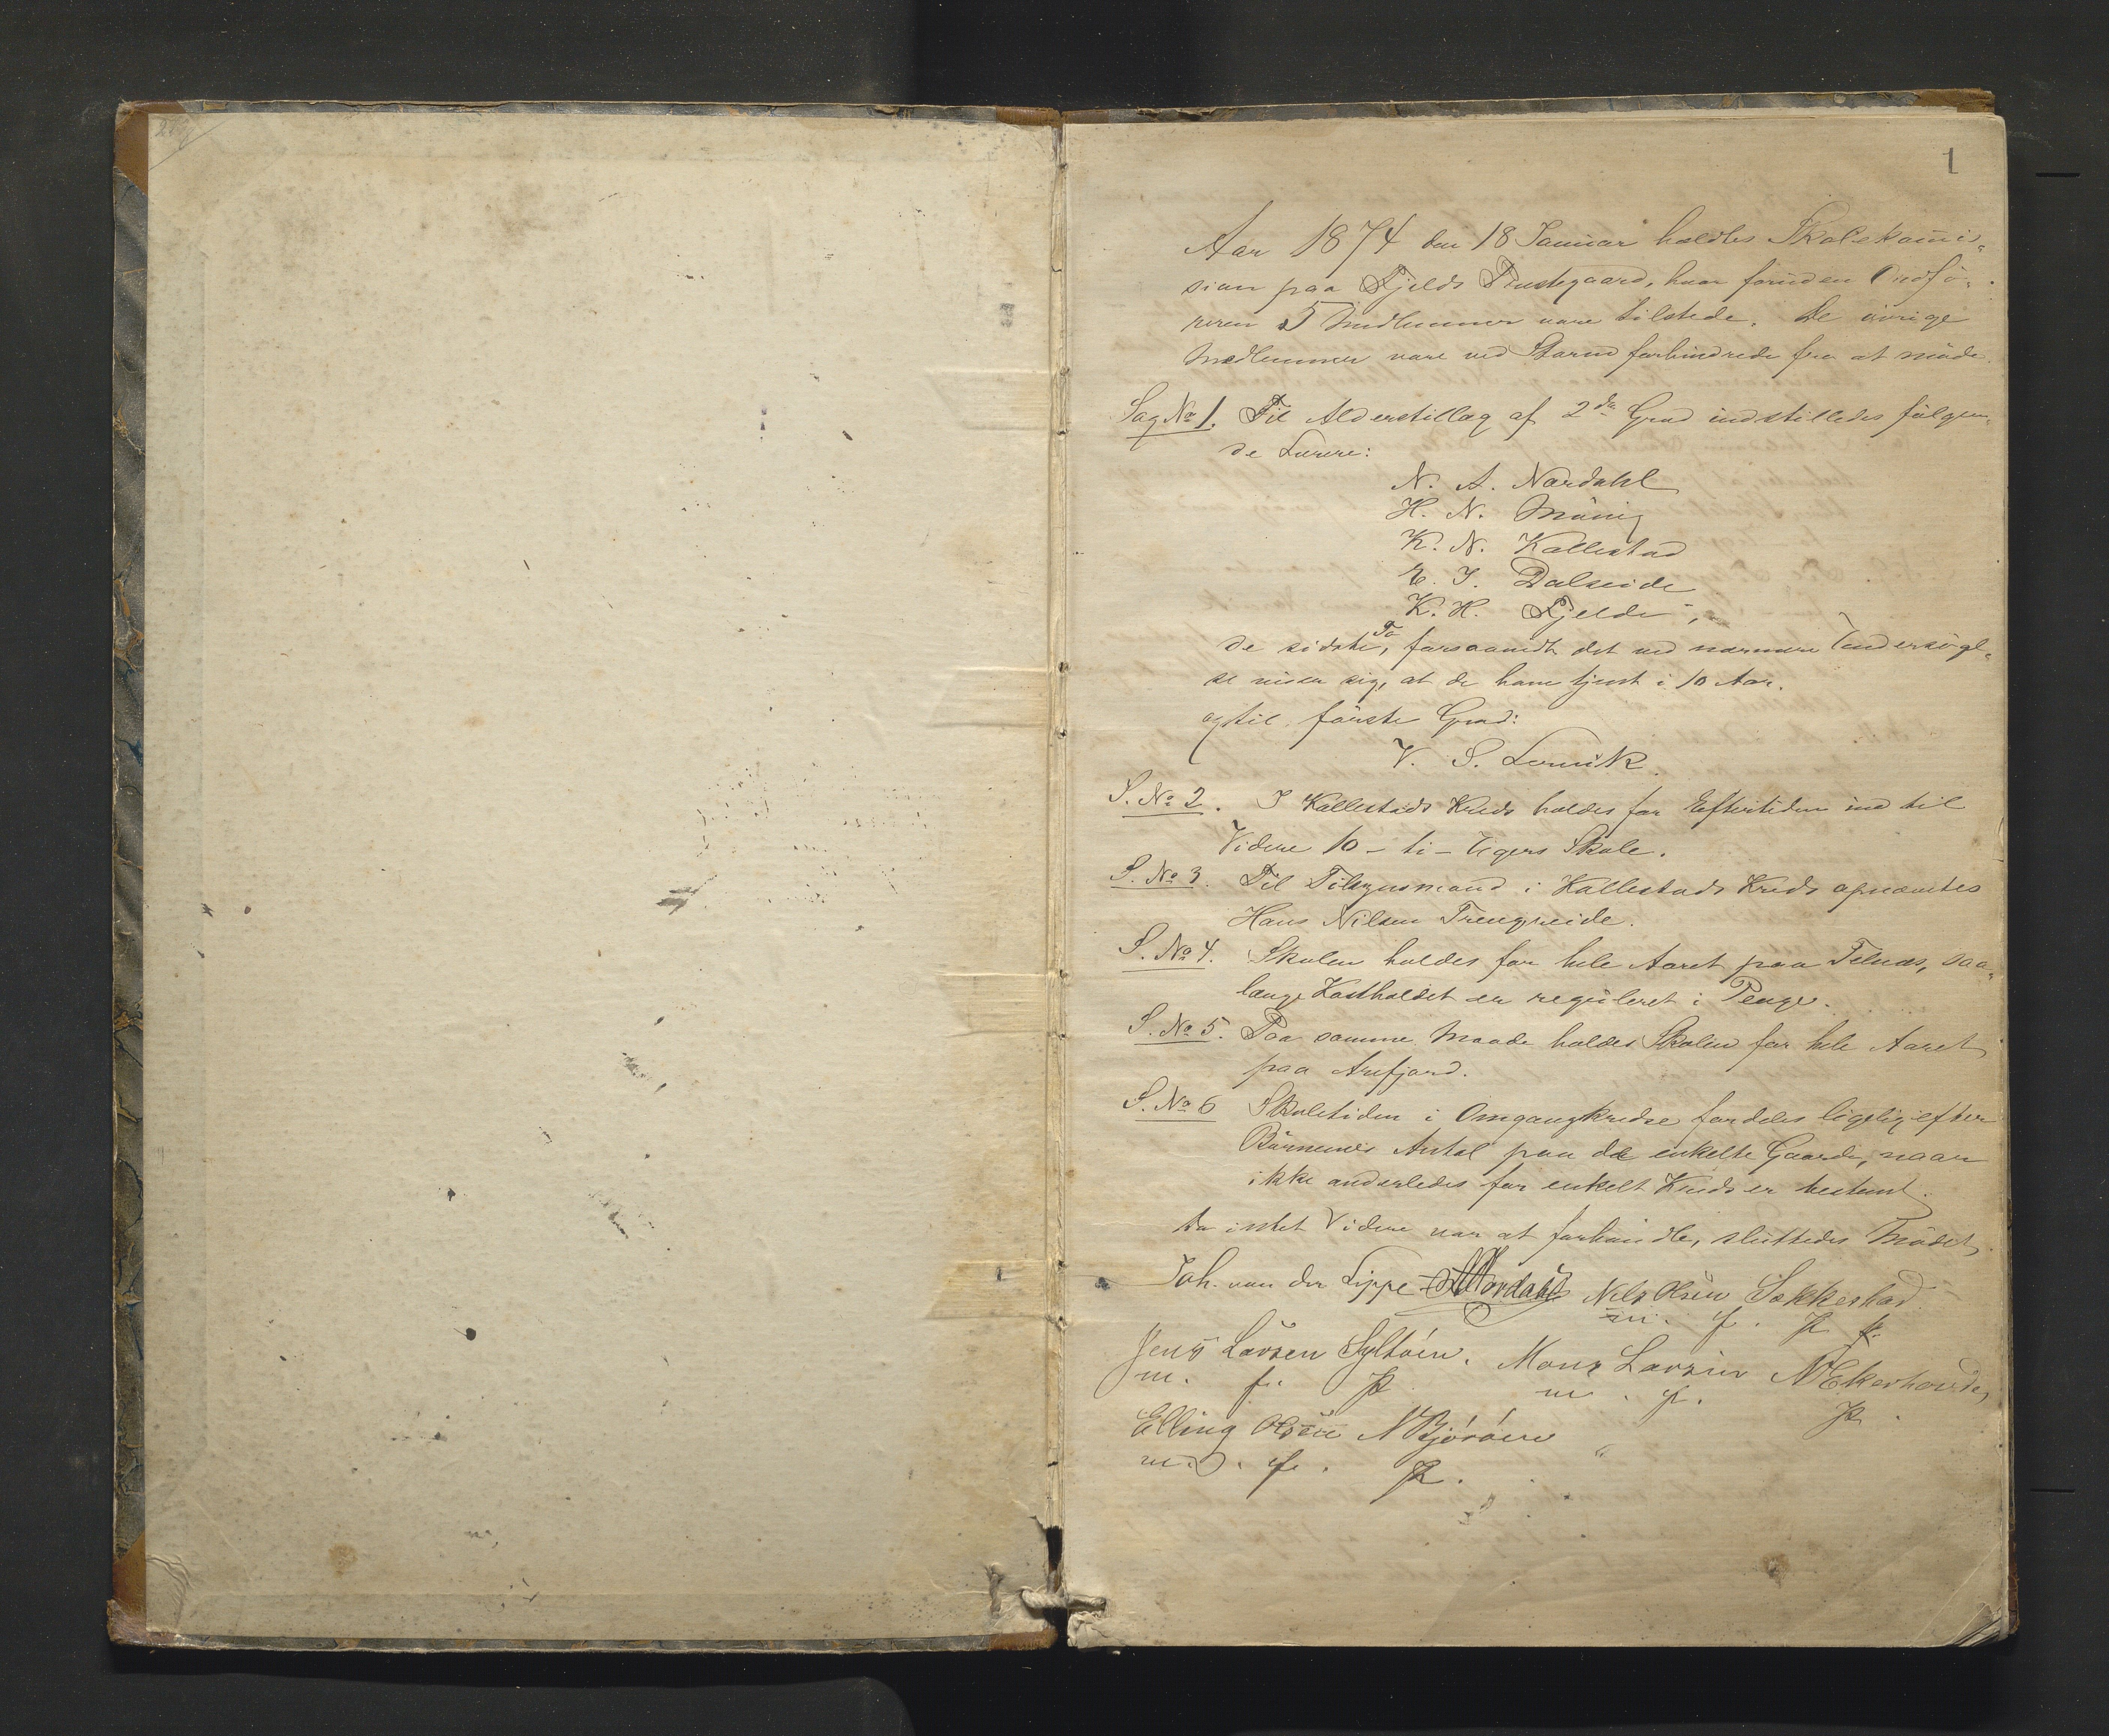 1
Aar 1874 den 18 Januar holdtes Skolekom̅is-
sion paa Fjelds Præstegaard, hvor foruden Ordfö-
reren 5 Medlemmer vare tilstede. De övrige
Medlemmer vare ved Storm forhindrede fra at möde.
Sag No 1. Til Alderstillæg af 2den Grad indstilledes fölgen-
de Lærere:
N. A. Nordahl
H. N. Mövig
K. N. Kallestad
E. J. Dalseide
K. H. Fjelde,
de sidste To, forsaavidt det ved nærmere Undersögel-
se viser sig, at de have tjent i 10 Aar.
og til förste Grad:
V. S. Lervik.
S. No 2. I Kallestads Kreds holdes for Eftertiden ind til
Videre 10 - ti - Ugers Skole.
S. No 3. Til Tilsynsmand i Kallestads Kreds opnævntes
Hans Nilsen Trengereide.
S. No 4. Skolen holdes for hele Aaret paa Telnæs, saa-
længe Kostholdet er reguleret i Penge.
S. No 5. Paa samme Maade holdes Skolen for hele Aaret
paa Arefjord.
S. No 6 Skoletiden i Omgangskredse fordeles ligelig efter
Börnenes Antal paa de enkelte Gaarde, naar
ikke anderledes for enkelt Kreds er bestemt.
Da intet Videre var at forhandle, sluttedes Mödet.
Joh. von der Lippe Nordahl Nils Olsen Sekkestad
m. f. P
Jens Larsen Syltöen. Mons Larsen N Ekerhovde,
m. f. P m. f. P.
Elling Olsen N Björöen
m. f. P.